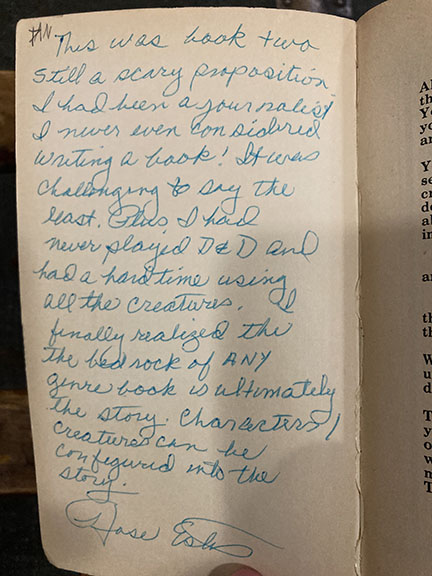 This was book two
still a scary proposition.
I had been a journalist
I never even considered
writing a book! It was
challenging to say the
least. Plus I had
never played D&D and
had a hard time using
all the creatures. I
finally realized the
the bedrock of ANY
genre book is ultimately
the story. Characters/
creatures can be
configured into the
story.
Rose Estes